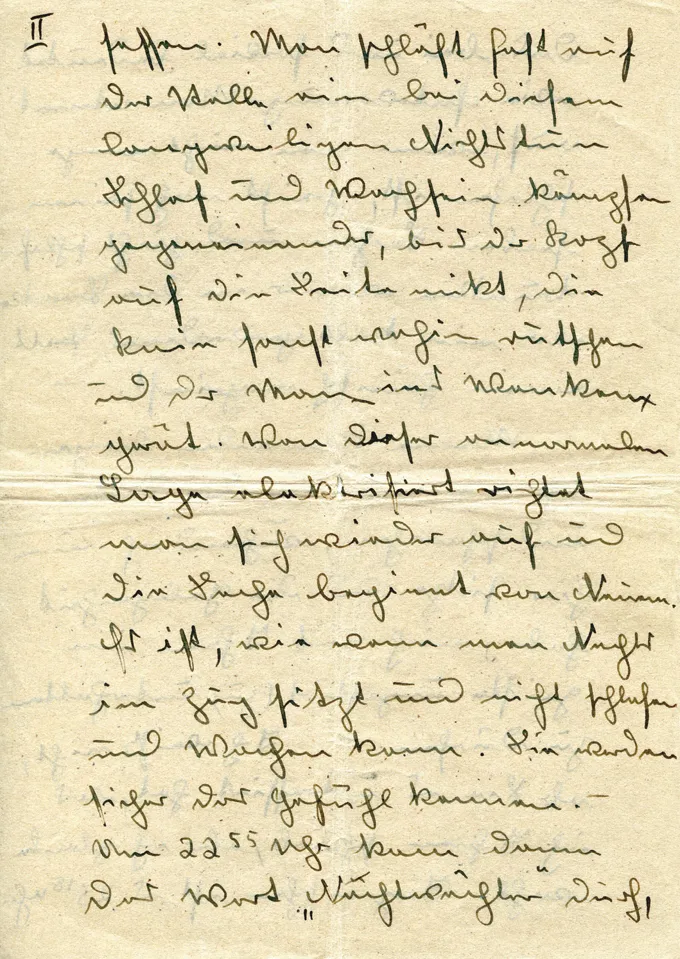 II
fassen. Man schläft fast auf
der Stelle ein bei diesem
langweiligen Nichtstun
Schlaf und Wachsein kämpfen
gegeneinander, bis der Kopf
auf die Seite nikt, die
Knie sonst wohin rutschen
und der Mann ins Wanken
gerät. Von dieser annormalen
Lage elektrisiert richtet
man sich wieder auf und
die Sache beginnt von Neuem.
Es ist, wie wenn man Nachts
im Zug sitzt und nicht schlafen
und Wachen kann. Sie werden
sicher das Gefühl kennen.–
Um 22⁵⁵ Uhr kam dann
das Wort „Nachtwächter" durch,